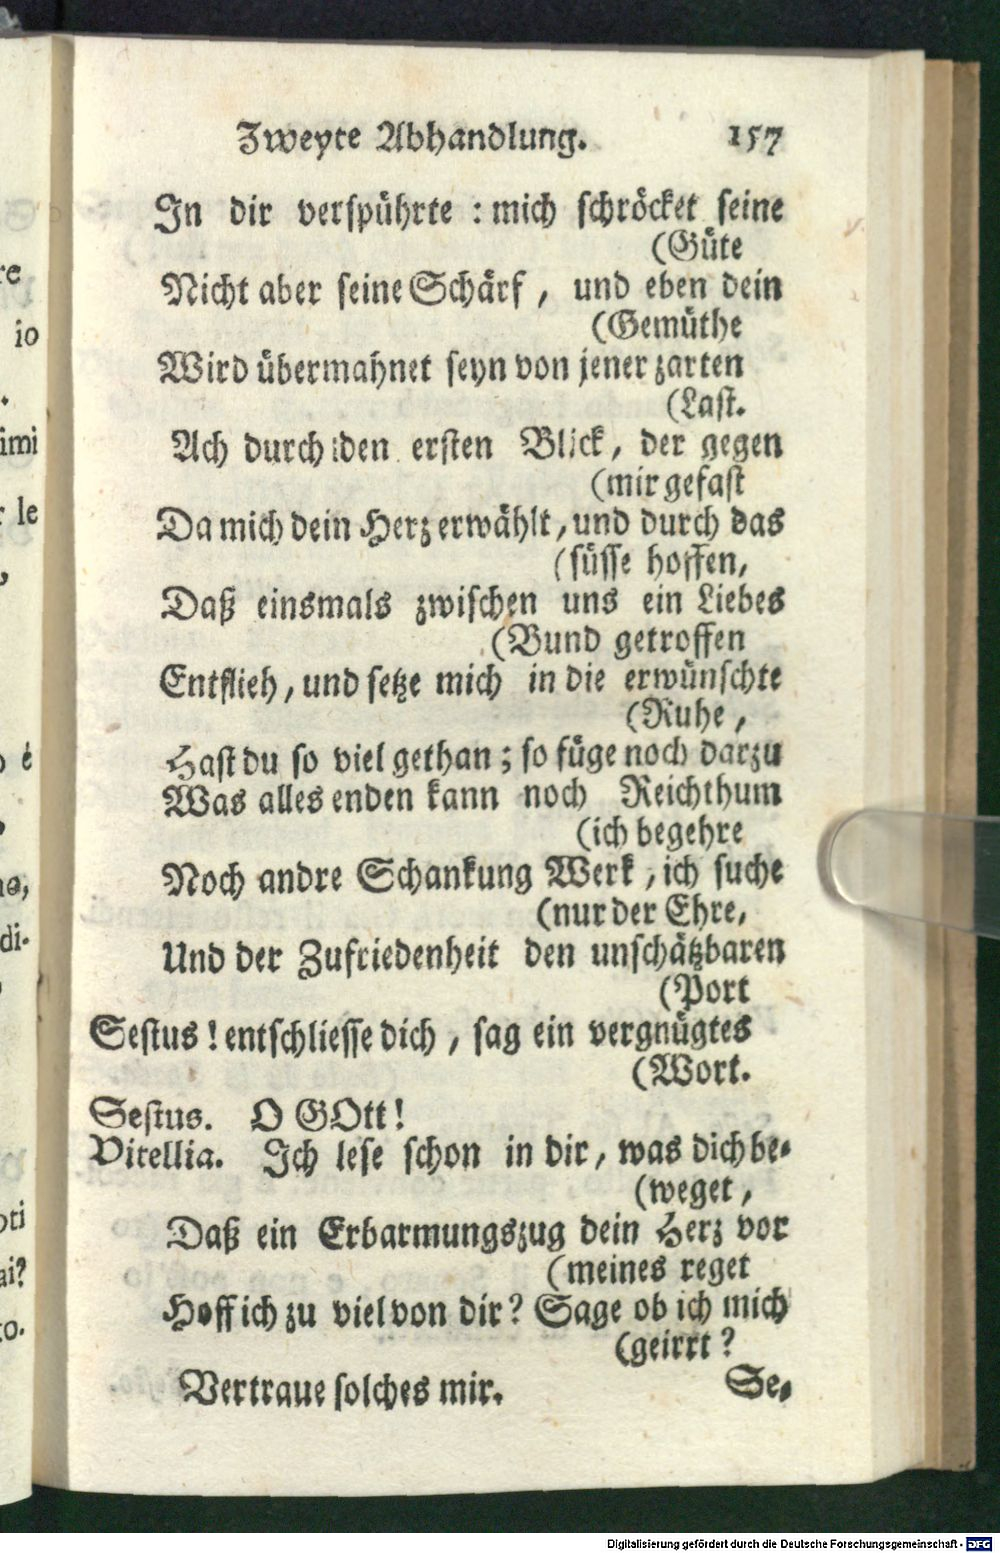 Zweyte Abhandlung. 157
In dir verspührte : mich schröcket seine
(Güte
Nicht aber seine Schärf , und eben dein
(Gemüthe
Wird übermahnet seyn von jener zarten
(Last.
Ach durch den ersten Blick, der gegen
(mir gefast
Da mich dein Herz erwählt, und durch das
(süsse hoffen,
Daß einsmals zwischen uns ein Liebes
(Bund getroffen
Entflieh, und setze mich in die erwünschte
(Ruhe ,
Hast du so viel gethan ; so füge noch darzu
Was alles enden kann noch Reichthum
(ich begehre
Noch andre Schankung Werk , ich suche
(nur der Ehre,
Und der Zufriedenheit den unschätzbaren
(Port
Sestus ! entschliesse dich , sag ein vergnügtes
(Wort.
Sestus. O GOtt !
Vitellia. Ich lese schon in dir, was dich be-
(weget ,
Daß ein Erbarmungszug dein Herz vor
(meines reget
Hoff ich zu viel von dir ? Sage ob ich mich
(geirrt ?
Vertraue solches mir.
Se-
re
io
imi
r le
è
no,
di-
oti
ai?
to.
Digitalisierung gefördert durch die Deutsche Forschungsgemeinschaft - DFG